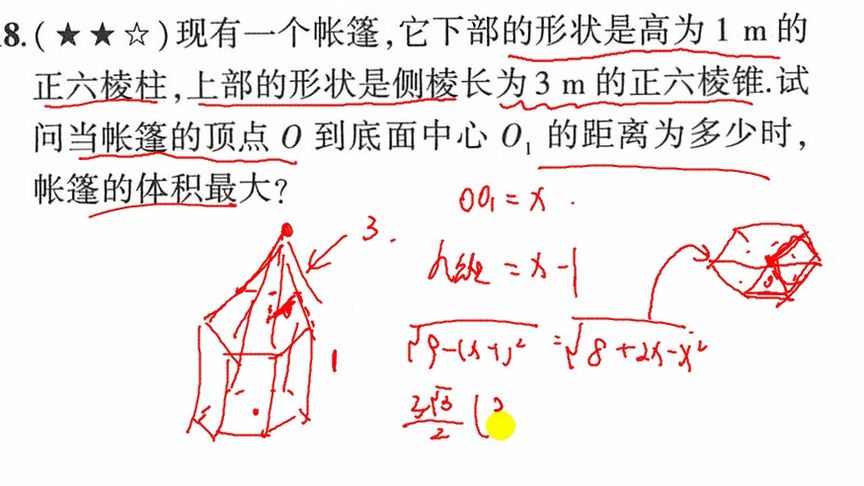 8.(★★☆)现有一个帐篷,它下部的形状是高为 1 m 的
正六棱柱,上部的形状是侧棱长为 3 m 的正六棱锥.试
问当帐篷的顶点 O 到底面中心 O₁ 的距离为多少时,
帐篷的体积最大?
OO₁ = x .
3 .
h锥 = x-1
√9-(x-1)² = √8+2x-x²
1
3√3/2 (